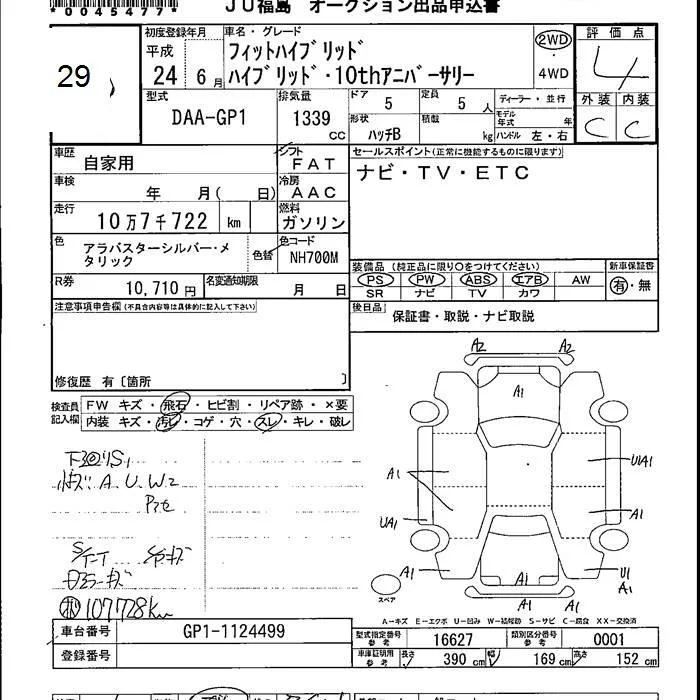 *0045477*
JU福島 オークション出品申込書
29
初度登録年月
平成
24 6月
車名・グレード
フィットハイブリッド
ハイブリッド・10thアニバーサリー
2WD
・
4WD
評価点
4
外装 内装
C C
型式
DAA-GP1
排気量
1339
CC
ドア
5
定員
5 人
ディーラー・並行
モデル年式 年
形状
ハッチB
積載
kg
ハンドル 左・右
車歴
自家用
シフト
FAT
セールスポイント(正常に機能するものに限ります)
ナビ・TV・ETC
車検
年 月( 日)
冷房
AAC
走行
10万7千722 km
燃料
ガソリン
色
アラバスターシルバー・メタリック
色替
色コード
NH700M
装備品(純正品に限り○をつけてください)
新車保証書
PS PW ABS エアB AW
SR ナビ TV カワ
有・無
R券
10,710円
名変通知期限
月 日
後日品
保証書・取説・ナビ取説
注意事項申告欄(不具合内容等は具体的に記入して下さい)
修復歴 有〔箇所 〕
検査員記入欄
FW キズ・飛石・ヒビ割・リペア跡・×要
内装 キズ・汚レ・コゲ・穴・スレ・キレ・破レ
A2 A2
A1
A1
U1A1
UA1
A1
A1
U1
A1
A1
A1
A1
A.U.W2
107728km
スペア
A-キズ E-エクボ U-凹み W-補修跡 S-サビ C-腐食 XX-交換済
車台番号
GP1-1124499
登録番号
型式指定番号
参考
16627
類別区分番号
参考
0001
車庫証明用
参考
長さ
390 cm
幅
169 cm
高さ
152 cm